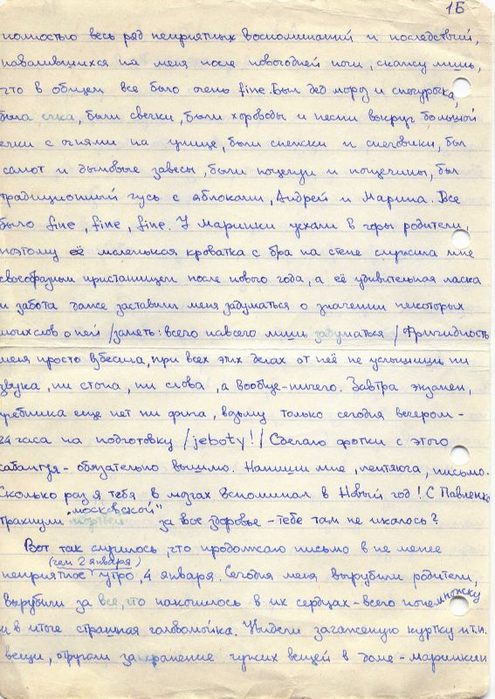 1Б
полностью весь ряд неприятных воспоминаний и последствий,
навалившихся на меня после новогодней ночи, скажу лишь,
что в общем все было очень fine. Был дед мороз и снегурочка,
была елка, были свечки, были хороводы и песни вокруг большой
елки с огнями на улице, были снежки и снеговики, был
салют и дымовые завесы, были поцелуи и пощечины, был
традиционный гусь с яблоками, Андрей и Марина. Все
было fine, fine, fine. У Маришки уехали в горы родители,
поэтому её маленькая кроватка с бра на стене служила мне
своеобразным пристанищем после нового года, а её удивительная ласка
и забота даже заставили меня задуматься о значении некоторых
моих слов о ней /заметь: всего навсего лишь задуматься/ Фригидность
меня просто взбесила, при всех этих делах от неё не услышишь ни
звука, ни стона, ни слова, а вообще-ничего. Завтра экзамен,
учебника еще нет ни фига, возьму только сегодня вечером-
24 часа на подготовку /jeboty!/ Сделаю фотки с этого
сабантуя - обязательно вышлю. Напиши мне, лентяюга, письмо.
Сколько раз я тебя в мозгах вспоминал в Новый год! С Павленко
тракнули "московской" за все здоровье - тебе там не икалось?
Вот так случилось, что продолжаю письмо в не менее
неприятное (чем 2 января) утро, 4 января. Сегодня меня вырубили родители,
вырубили за все, что накопилось в их сердцах - всего понемножку
и в итоге страшная головомойка. Увидели загаженую куртку и т.п.
вещи, отругали за хранение чужих вещей в доме - маришкин